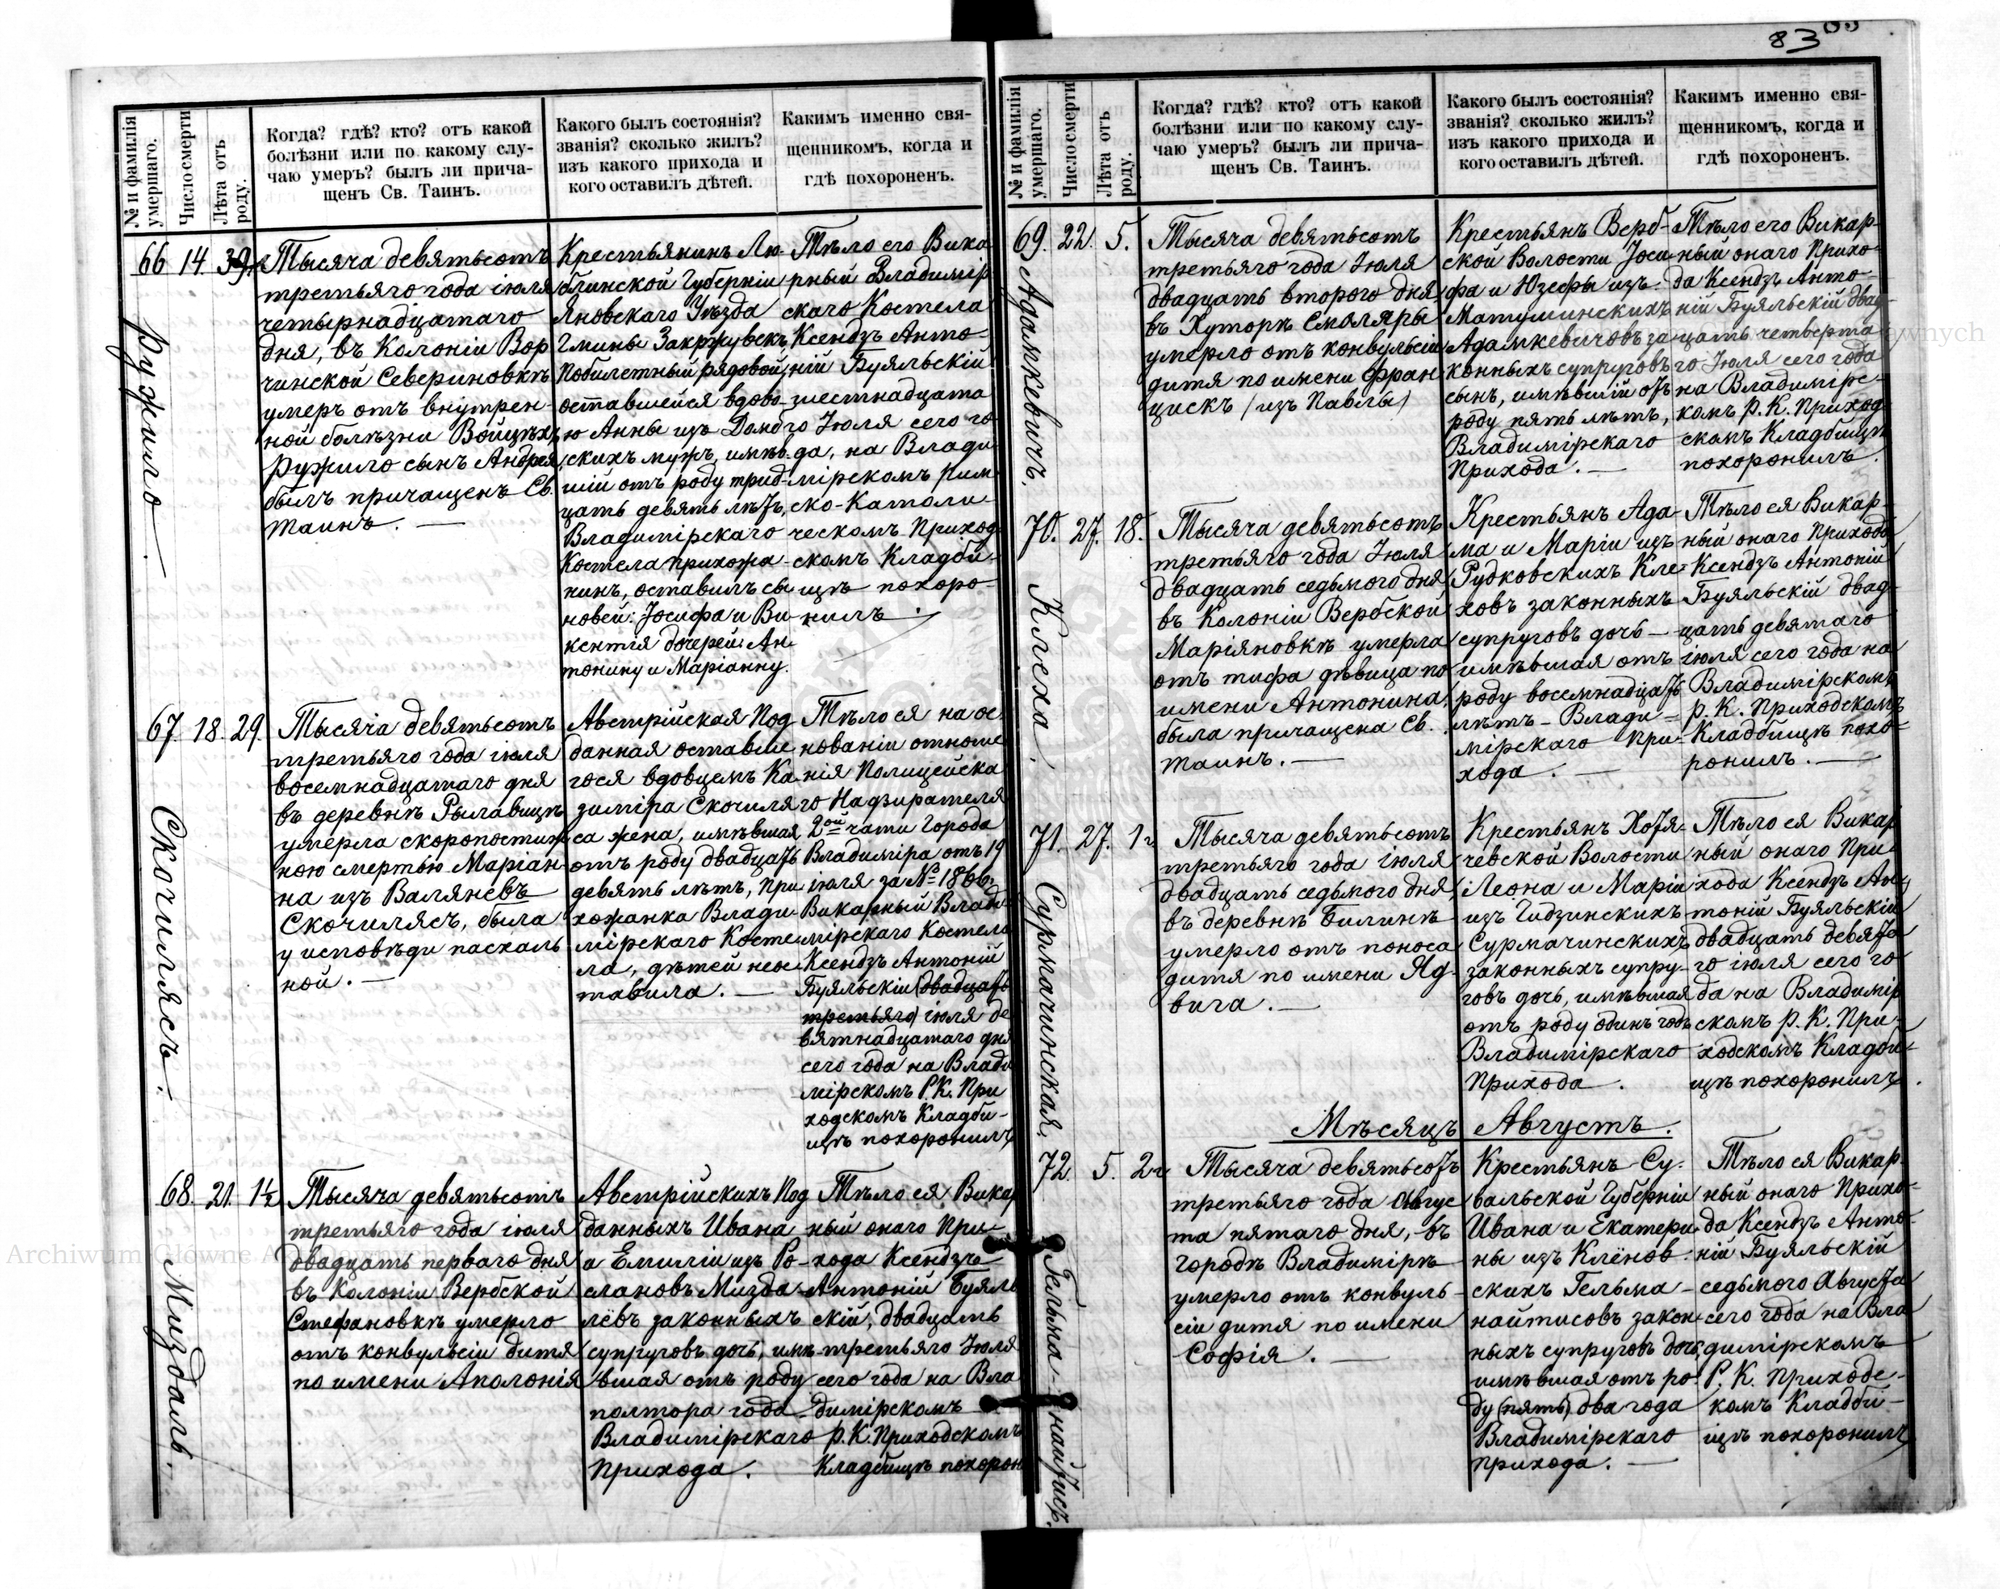 83
№ и фамилія умершаго.
Число смерти
Лѣта отъ роду.
Когда? гдѣ? кто? отъ какой
болѣзни или по какому слу-
чаю умеръ? былъ ли прича-
щенъ Св. Таинъ.
Какого былъ состоянія?
званія? сколько жилъ?
изъ какого прихода и
кого оставилъ дѣтей.
Какимъ именно свя-
щенникомъ, когда и
гдѣ похороненъ.
66 14 39
Ружило.
Тысяча девятьсотъ
третьяго года іюля
четырнадцатаго
дня, въ Колоніи Вор
чинской Севериновкѣ
умеръ отъ внутрен-
ной болѣзни Войцѣхъ
Ружило сынъ Андрея
былъ причащенъ Св.
Таинъ. —
Крестьянинъ Лю-
блинской Губерніи
Яновскаго Уѣзда
Гмины Закржувекъ
Побилетный рядовой,
оставшейся вдово-
ю Анны изъ Домб
скихъ мужъ, имѣв-
шій отъ роду трид-
цать девять лѣтъ,
Владимірскаго
Костела прихожа-
нинъ, оставилъ сы
новей: Іосифа и Ви-
кентія дочерей: Ан
тонину и Маріанну.
Тѣло его Вика
рный Владимір
скаго Костела
Ксендзъ Анто
ній Буяльскій
шестнадцата
го Іюля сего го
да, на Влади
мірскомъ Рим
ско-Католи
ческомъ Приход
скомъ Кладби-
щѣ похоро-
нилъ.
67. 18. 29.
Скочилясъ.
Тысяча девятьсотъ
третьяго года іюля
восемнадцатаго дня
въ деревнѣ Рылавицѣ
умерла скоропостиж
ною смертью Маріан-
на изъ Валяневъ
Скочилясъ, была
у исповѣди пасхаль
ной. —
Австрійская Под
данная оставше
гося вдовцемъ Ка
зиміра Скочиля
са жена, имѣвшая
отъ роду двадцать
девять лѣтъ, при
хожанка Влади-
мірскаго Косте
ла, дѣтей неос
тавила. —
Тѣло ея на ос
нованіи отноше
нія Полицейска
го Надзирателя
2ой чати Города
Владиміра отъ 19
іюля за № 1866
Викарный Влади
мірскаго Костела
Ксендзъ Антоній
Буяльскій (двадцать
третьяго) іюля де
вятнадцатаго дня
сего года на Влади
мірскомъ Р.К. При
ходскомъ Кладби-
щѣ похоронилъ
68. 21. 1½
Миздаль.
Тысяча девятьсотъ
третьяго года іюля
двадцать перваго дня
въ Колоніи Вербской
Стефановкѣ умерло
отъ конвульсіи дитя
по имени Аполонія
Австрійскихъ Под
данныхъ Ивана
и Емиліи изъ Ро-
слановъ Мизда
лёвъ законныхъ
супруговъ дочь, имѣ
вшая отъ роду
полтора года.
Владимірскаго
Прихода.
Тѣло ея Викар
ный онаго При-
хода Ксендзъ
Антоній Буяль
скій, двадцать
третьяго Іюля
сего года на Вла
димірскомъ
Р.К. Приходскомъ
Кладбищѣ похорон
№ и фамилія умершаго.
Число смерти
Лѣта отъ роду.
Когда? гдѣ? кто? отъ какой
болѣзни или по какому слу-
чаю умеръ? былъ ли прича-
щенъ Св. Таинъ.
Какого былъ состоянія?
званія? сколько жилъ?
изъ какого прихода и
кого оставилъ дѣтей.
Какимъ именно свя-
щенникомъ, когда и
гдѣ похороненъ.
69. 22. 5.
Адамкевичъ.
Тысяча девятьсотъ
третьяго года Іюля
двадцать второго дня
въ Хуторѣ Смоляры
умерло отъ конвульсіи
дитя по имени Фран
цискъ (изъ Павлы)
Крестьянъ Верб-
ской Волости Іоси
фа и Юзефы изъ
Матушинскихъ
Адамкевичовъ за
конныхъ супруговъ
сынъ, имѣвшій отъ
роду пять лѣтъ,
Владимірскаго
Прихода. —
Тѣло его Викар-
ный онаго Прихо-
да Ксендзъ Анто-
ній Буяльскій двад-
цать четверта
го Іюля сего года
на Владимірс-
комъ Р.К. Приход
скомъ Кладбищѣ
похоронилъ.
70. 27. 18.
Клеха.
Тысяча девятьсотъ
третьяго года Іюля
двадцать седьмого дня
въ Колоніи Вербской
Маріяновкѣ умерла
отъ тифа дѣвица по
имени Антонина,
была причащена Св.
Таинъ. —
Крестьянъ Ада-
ма и Маріи изъ
Рудковскихъ Кле-
ховъ законныхъ
супруговъ дочь —
имѣвшая отъ
роду восемнадцать
лѣтъ - Влади-
мірскаго При-
хода. —
Тѣло ея Викар-
ный онаго Прихода
Ксендзъ Антоній
Буяльскій двад-
цать девятаго
іюля сего года на
Владимірскомъ
Р. К. Приходскомъ
Кладбищѣ похо-
ронилъ. —
71. 27. 1г
Сурмачинская.
Тысяча девятьсотъ
третьяго года іюля
двадцать седьмого дня,
въ деревнѣ Билинѣ
умерло отъ поноса
дитя по имени Яд-
вига. —
Крестьянъ Хотя-
чевской Волости
Леона и Маріи
изъ Гидзинскихъ
Сурмачинскихъ
законныхъ супру-
говъ дочь, имѣвшая
отъ роду одинъ годъ
Владимірскаго
Прихода.
Тѣло ея Викар
ный онаго При-
хода Ксендзъ Ан-
тоній Буяльскій
двадцать девята
го іюля сего го
да на Владимір
скомъ Р. К. При-
ходскомъ Кладби-
щѣ похоронилъ.
Мѣсяцъ Августъ.
72. 5. 2г
Гельма-найтисъ.
Тысяча девятьсотъ
третьяго года Авгус
та пятаго дня, въ
Городѣ Владимірѣ
умерло отъ конвуль-
сіи дитя по имени
Софія. —
Крестьянъ Су-
вальской Губерніи
Ивана и Екатери
ны изъ Клёнов-
скихъ Гельма-
найтисовъ закон-
ныхъ супруговъ дочь
имѣвшая отъ ро-
ду (пять) два года
Владимірскаго
прихода. —
Тѣло ея Викар
ный онаго Прихо-
да Ксендзъ Анто-
ній Буяльскій
седьмого Августа
сего года на Вла
димірскомъ
Р. К. Приходс-
комъ Кладби-
щѣ похоронилъ